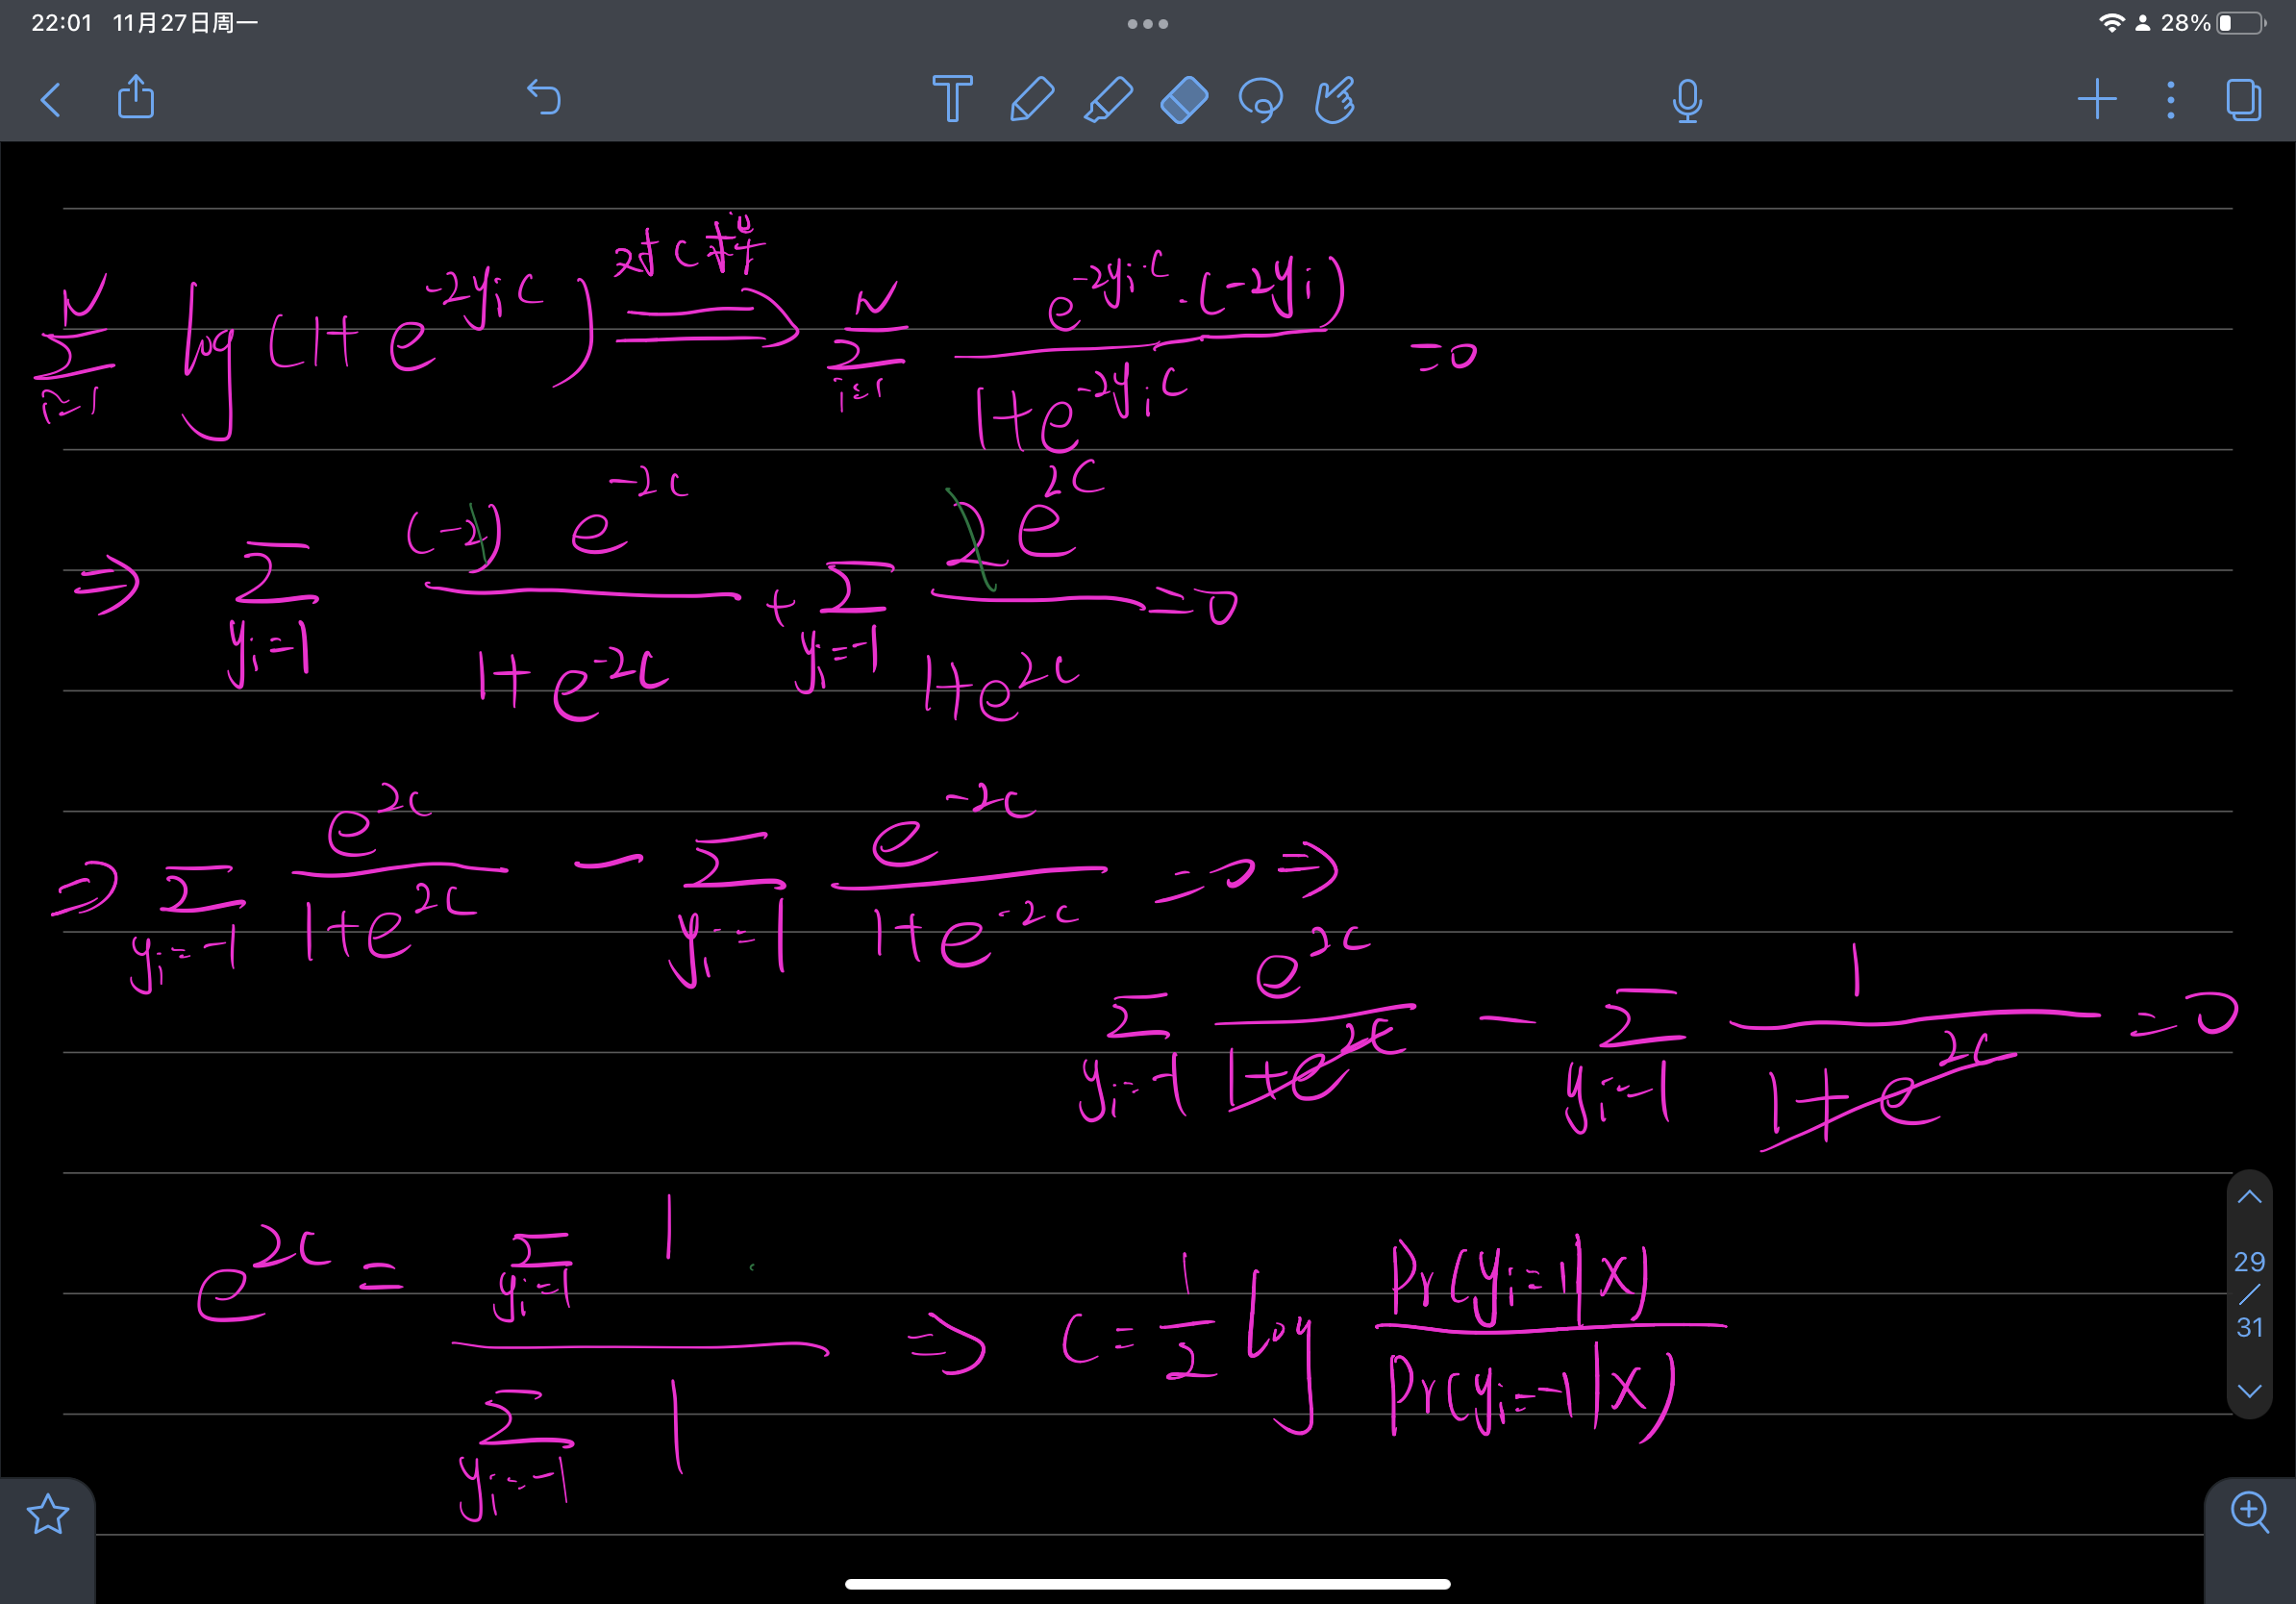 22:01 11月27日周一
28%
T
\sum_{i=1}^{N} log(1+e^{-2y_i c}) 对c求导⇒ \sum_{i=1}^{N} \frac{e^{-2y_i c}·(-2y_i)}{1+e^{-2y_i c}} =0
⇒ \sum_{y_i=1} \frac{(-2) e^{-2c}}{1+e^{-2c}} + \sum_{y_i=-1} \frac{2e^{2c}}{1+e^{2c}} =0
⇒ \sum_{y_i=-1} \frac{e^{2c}}{1+e^{2c}} - \sum_{y_i=1} \frac{e^{-2c}}{1+e^{-2c}} =0 ⇒
\sum_{y_i=-1} \frac{e^{2c}}{1+e^{2c}} - \sum_{y_i=1} \frac{1}{1+e^{2c}} =0
e^{2c} = \frac{\sum_{y_i=1} 1}{\sum_{y_i=-1} 1} ⇒ c = \frac{1}{2} log \frac{Pr(y_i=1|x)}{Pr(y_i=-1|x)}
29
/
31